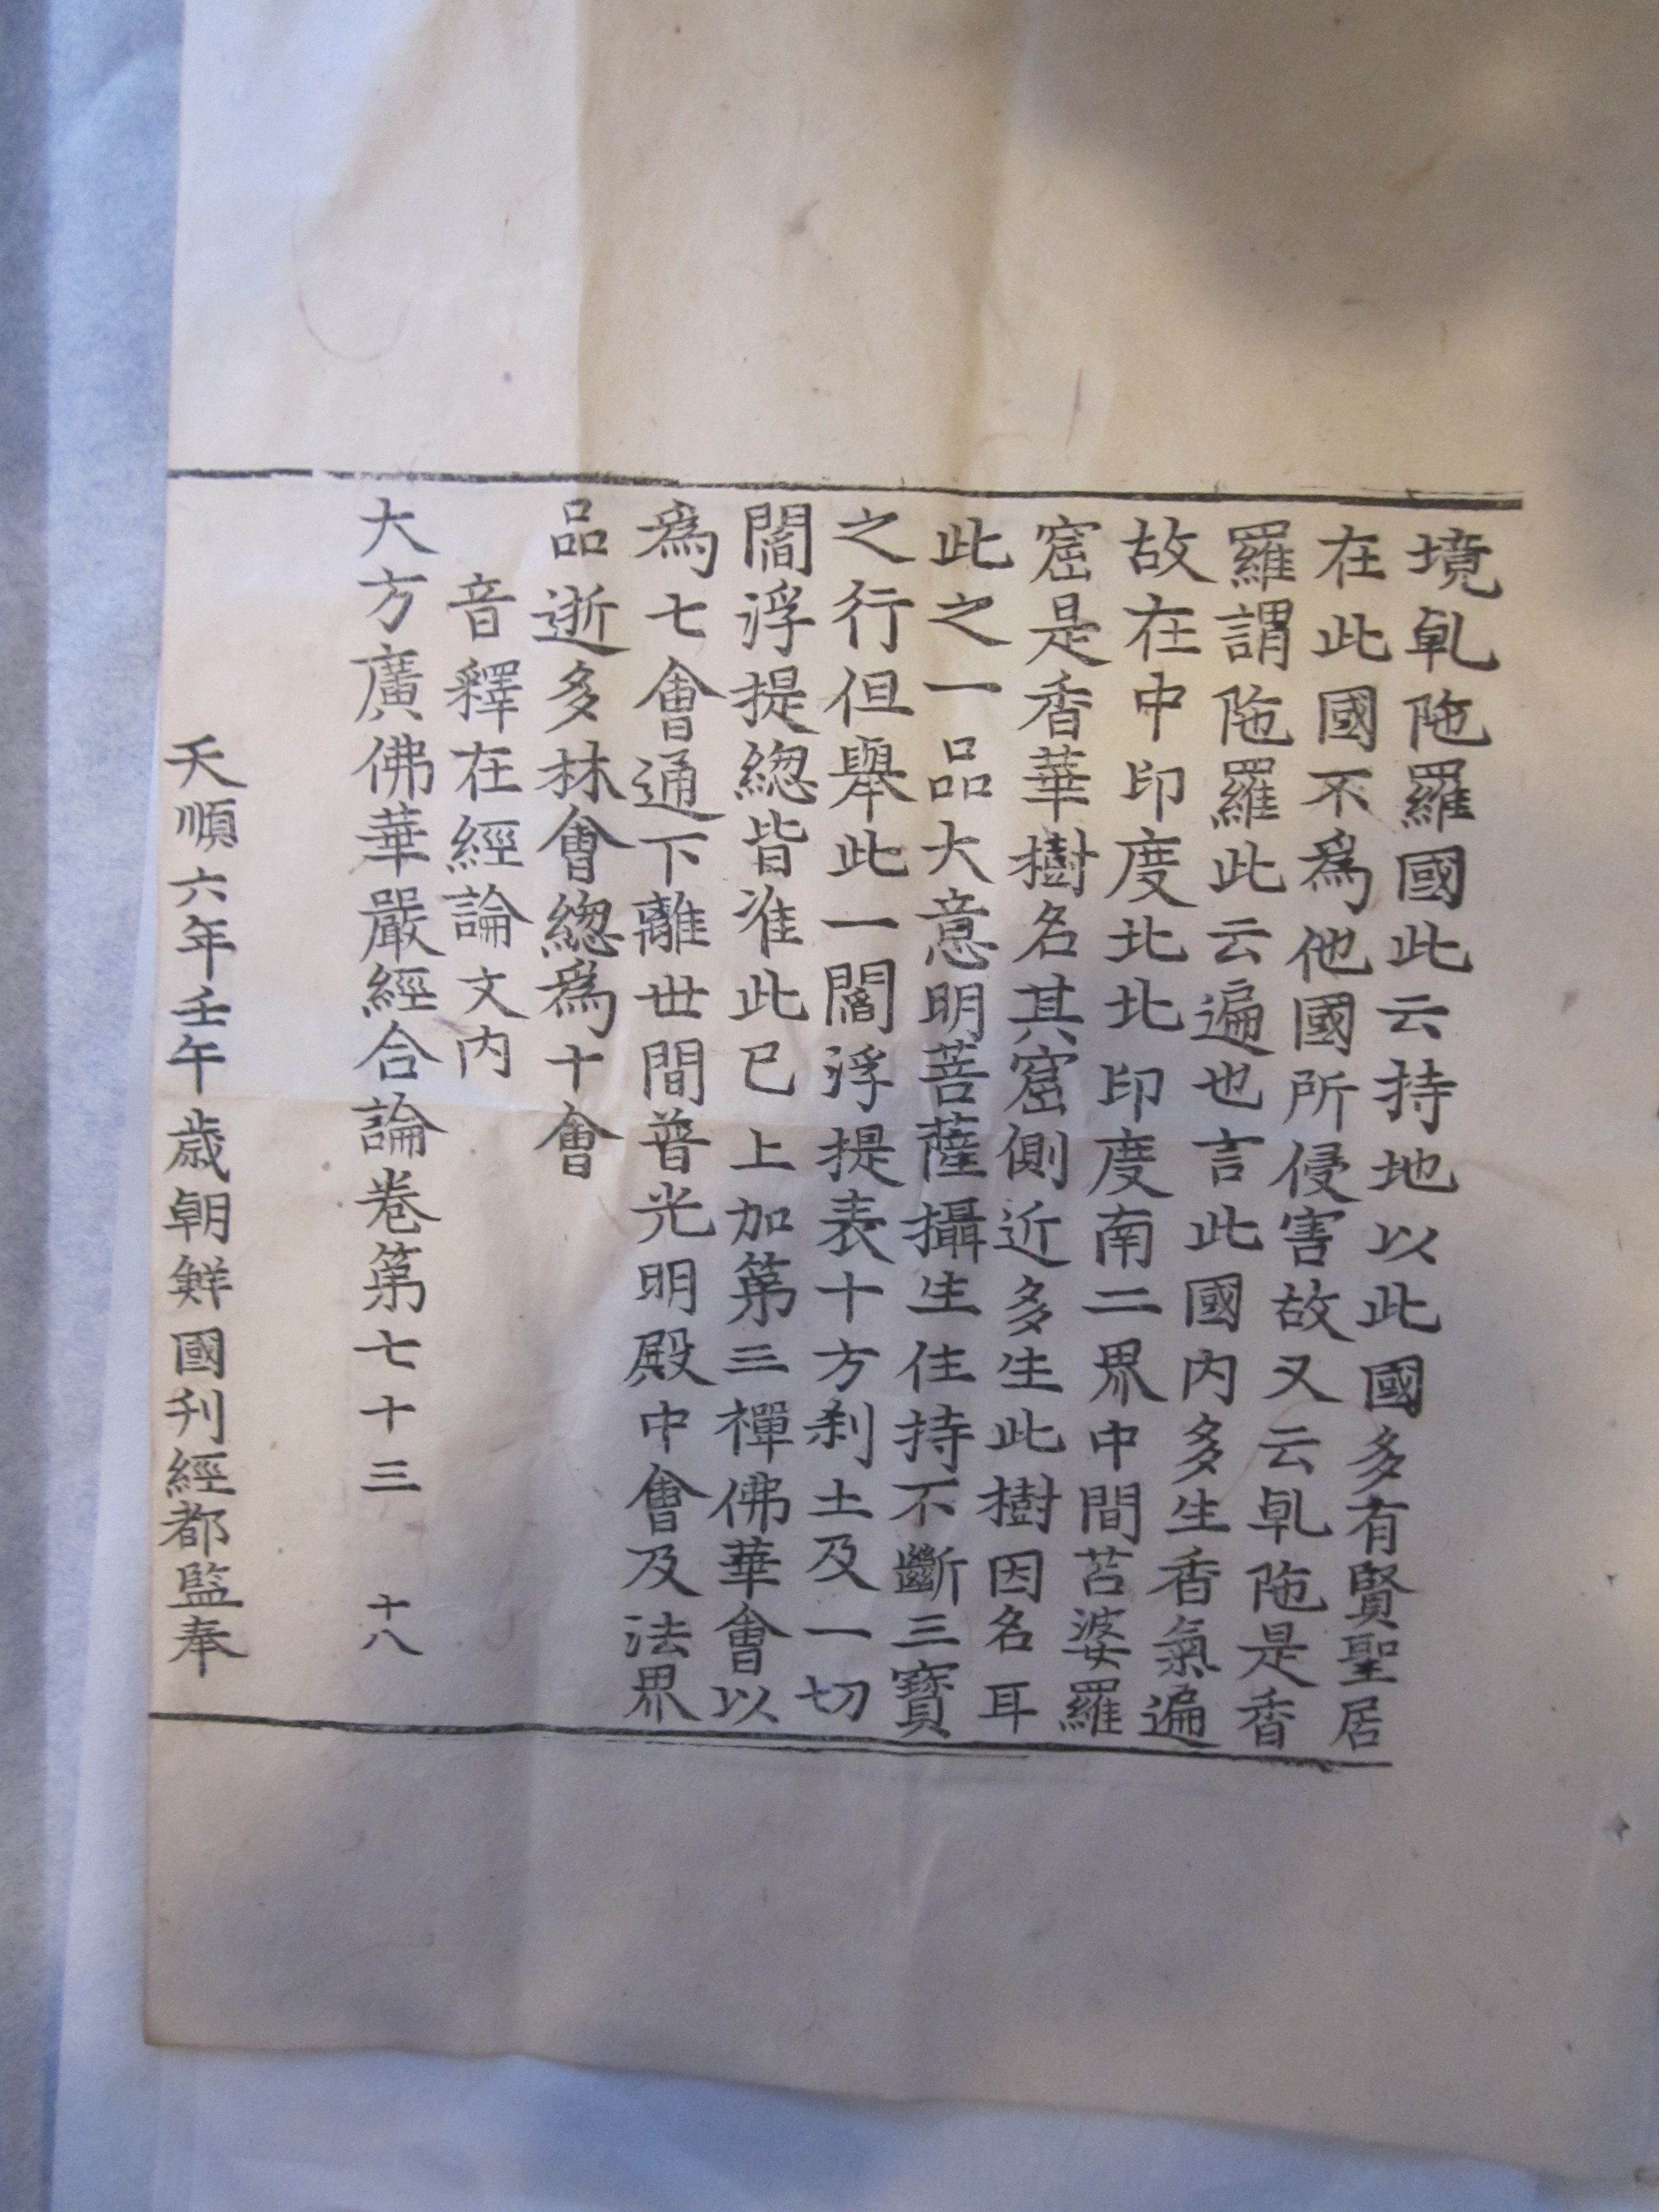 境乹陁羅國此云持地以此國多有賢聖居
在此國不爲他國所侵害故又云乹陁是香
羅謂陁羅此云遍也言此國内多生香氣遍
故在中印度北北印度南二界中間苫婆羅
窟是香華樹名其窟側近多生此樹因名耳
此之一品大意明菩薩攝生住持不斷三寶
之行但舉此一閻浮提表十方刹土及一切
閻浮提緫皆准此已上加第三禪佛華會以
爲七會通下離世間普光明殿中會及法界
品逝多林會緫爲十會
音釋在經論文内
大方廣佛華嚴經合論卷第七十三 十八
天順六年壬午歲朝鮮國刊經都監奉